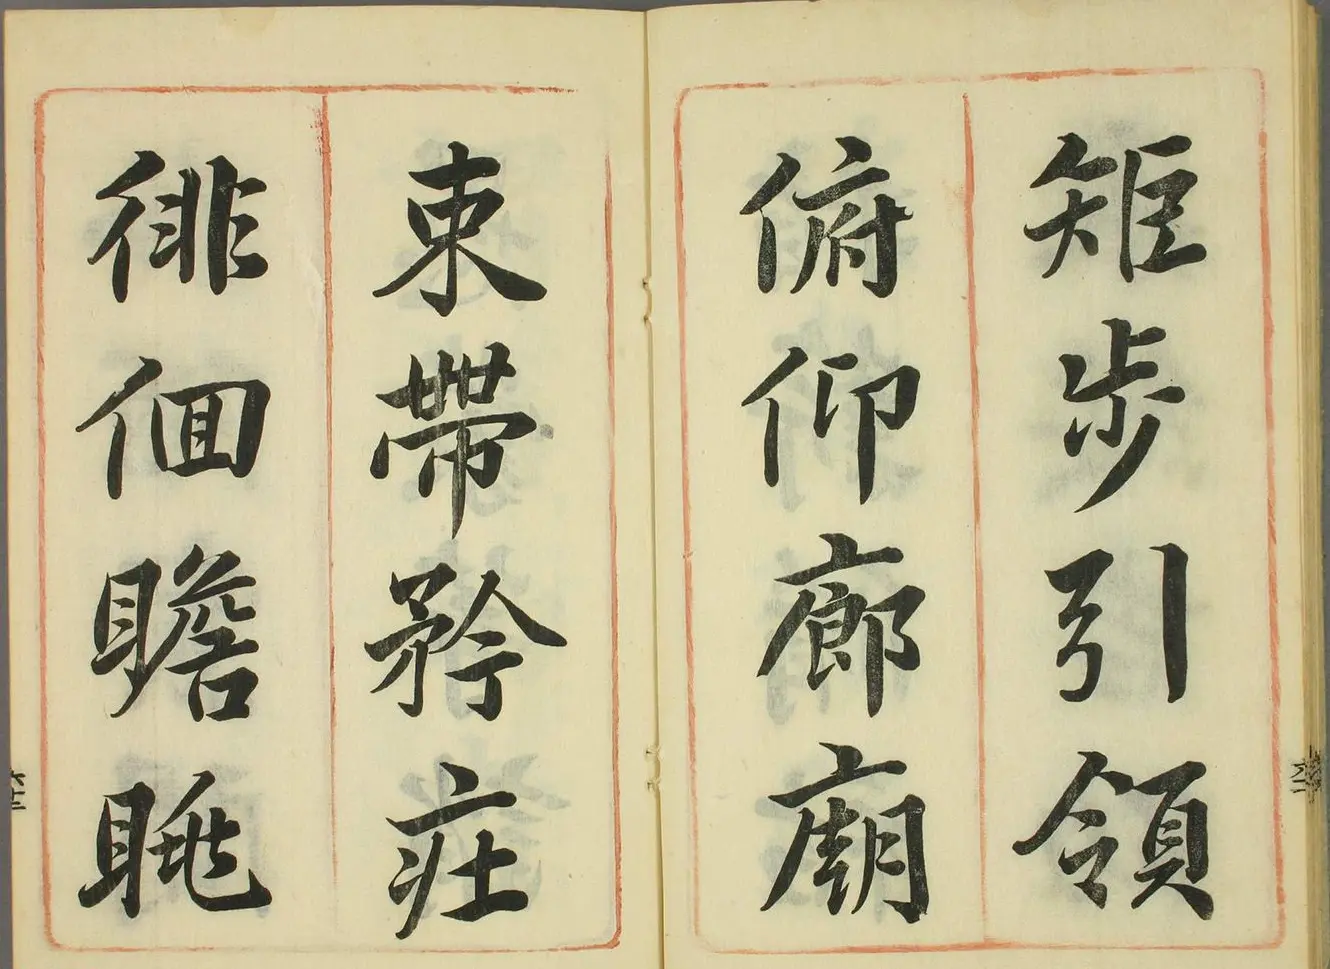 矩步引領
俯仰廊廟
束帶矜莊
徘佪瞻眺